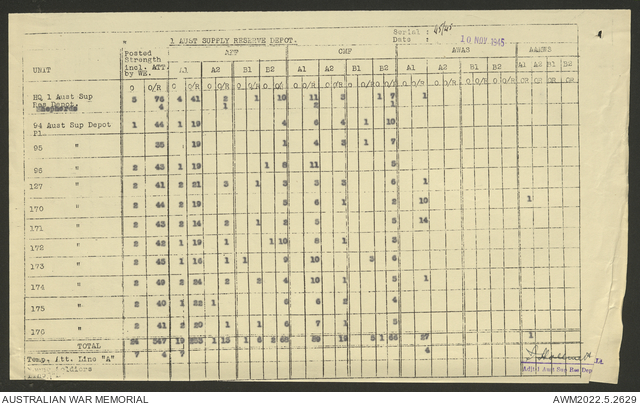 Serial :
1 AUST SUPPLY RESERVE DEPOT. Date : 10 NOV 1945
Posted Strength incl. ATT. by WE. AIF CMF AWAS AAMWS
UNIT A1 A2 B1 B2 A1 A2 B1 B2 A1 A2 B1 B2 A1 A2 B1 B2
O O/R O O/R O O/R O O/R O O/R
HQ 1 Aust Sup 5 76 4 41 2 1 10 11 3 1 7 1
Res Depot. 4 1 2 1
94 Aust Sup Depot 1 44 1 19 4 6 4 1 10
Pl.
95 " 35 19 1 4 3 1 7
96 " 2 43 1 19 1 8 11 5
127 " 2 41 2 21 3 1 3 3 3 6 1
170 " 2 44 2 19 5 6 1 2 10 1
171 " 2 43 2 14 2 1 2 5 5 14
172 " 2 42 1 19 1 1 10 8 1 3
173 " 2 45 1 16 1 1 9 10 3 6
174 " 2 49 2 24 2 2 4 10 1 5 1
175 " 2 40 1 22 1 6 6 2 4
176 " 2 41 2 20 1 1 6 7 1 5
TOTAL 24 547 19 1 13 1 6 2 68 19 5 1 66 27 1
Temp. Att. Line "A" 7 4 7 4
Adjt 1 Aust Sup Res Dep
AUSTRALIAN WAR MEMORIAL AWM2022.5.2629